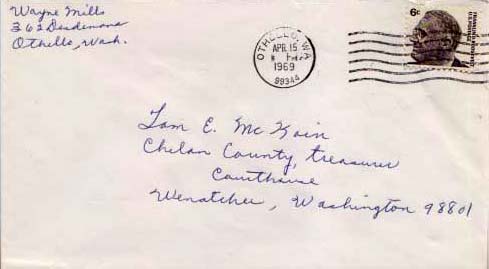 Wayne Mills
362 Desdemona
Othello, Wash.
OTHELLO, WA
APR 15
1969
99344
6¢
FRANKLIN D. ROOSEVELT
Tom E. McKoin
Chelan County, treasurer
Courthouse
Wenatchee, Washington 98801